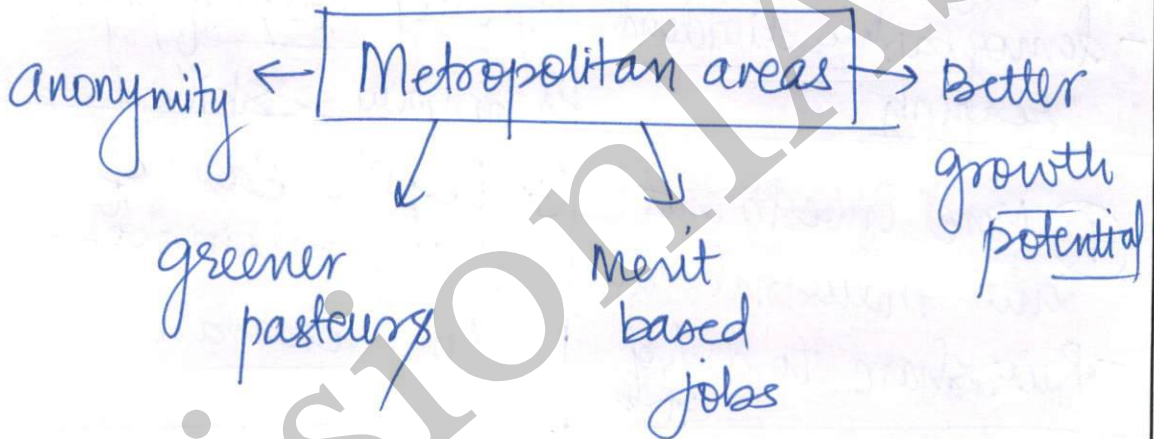 anonymity ← Metropolitan areas → Better
growth
potential
greener
pasteurs
Merit
based
jobs